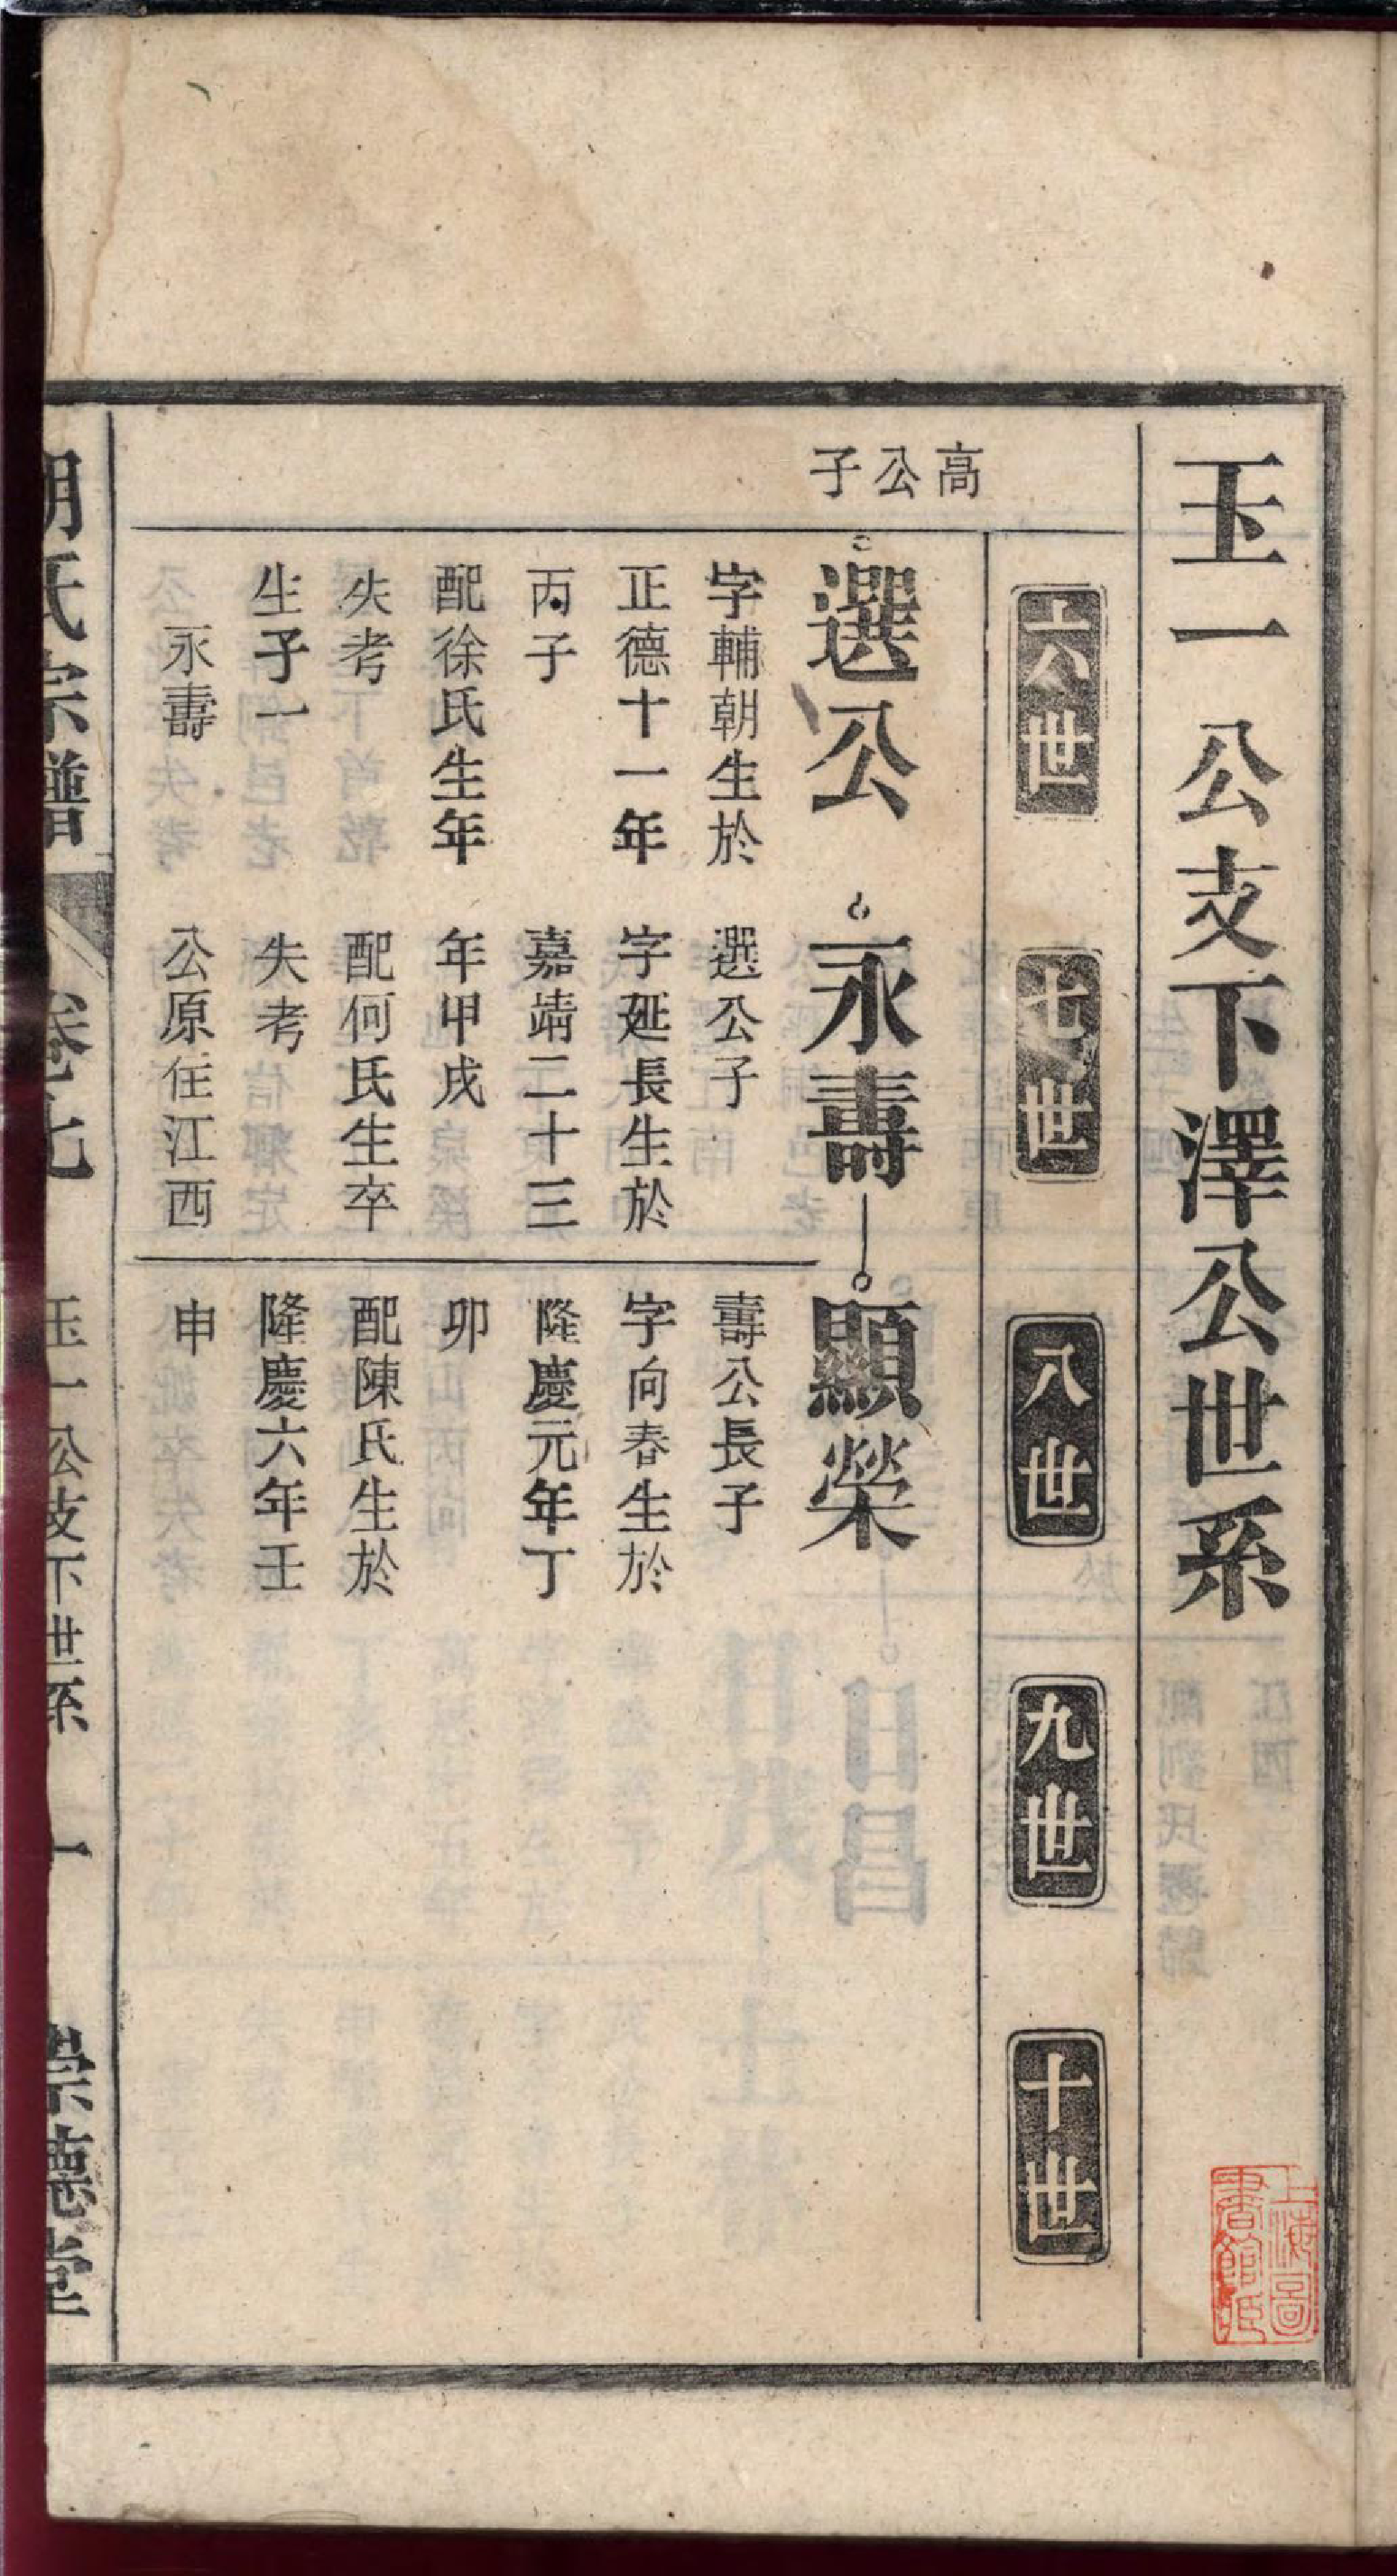 玉一公支下澤公世系
六世
七世
八世
九世
十世
高公子
選公
字輔朝生於
正德十一年
丙子
配徐氏生年
失考
生子一
永壽
永壽
選公子
字延長生於
嘉靖二十三
年甲戌
配何氏生卒
失考
公原住江西
顯榮
壽公長子
字向春生於
隆慶元年丁
卯
配陳氏生於
隆慶六年壬
申
胡氏宗譜
卷七
玉一公支下世系
一
崇德堂
上海圖
書館藏